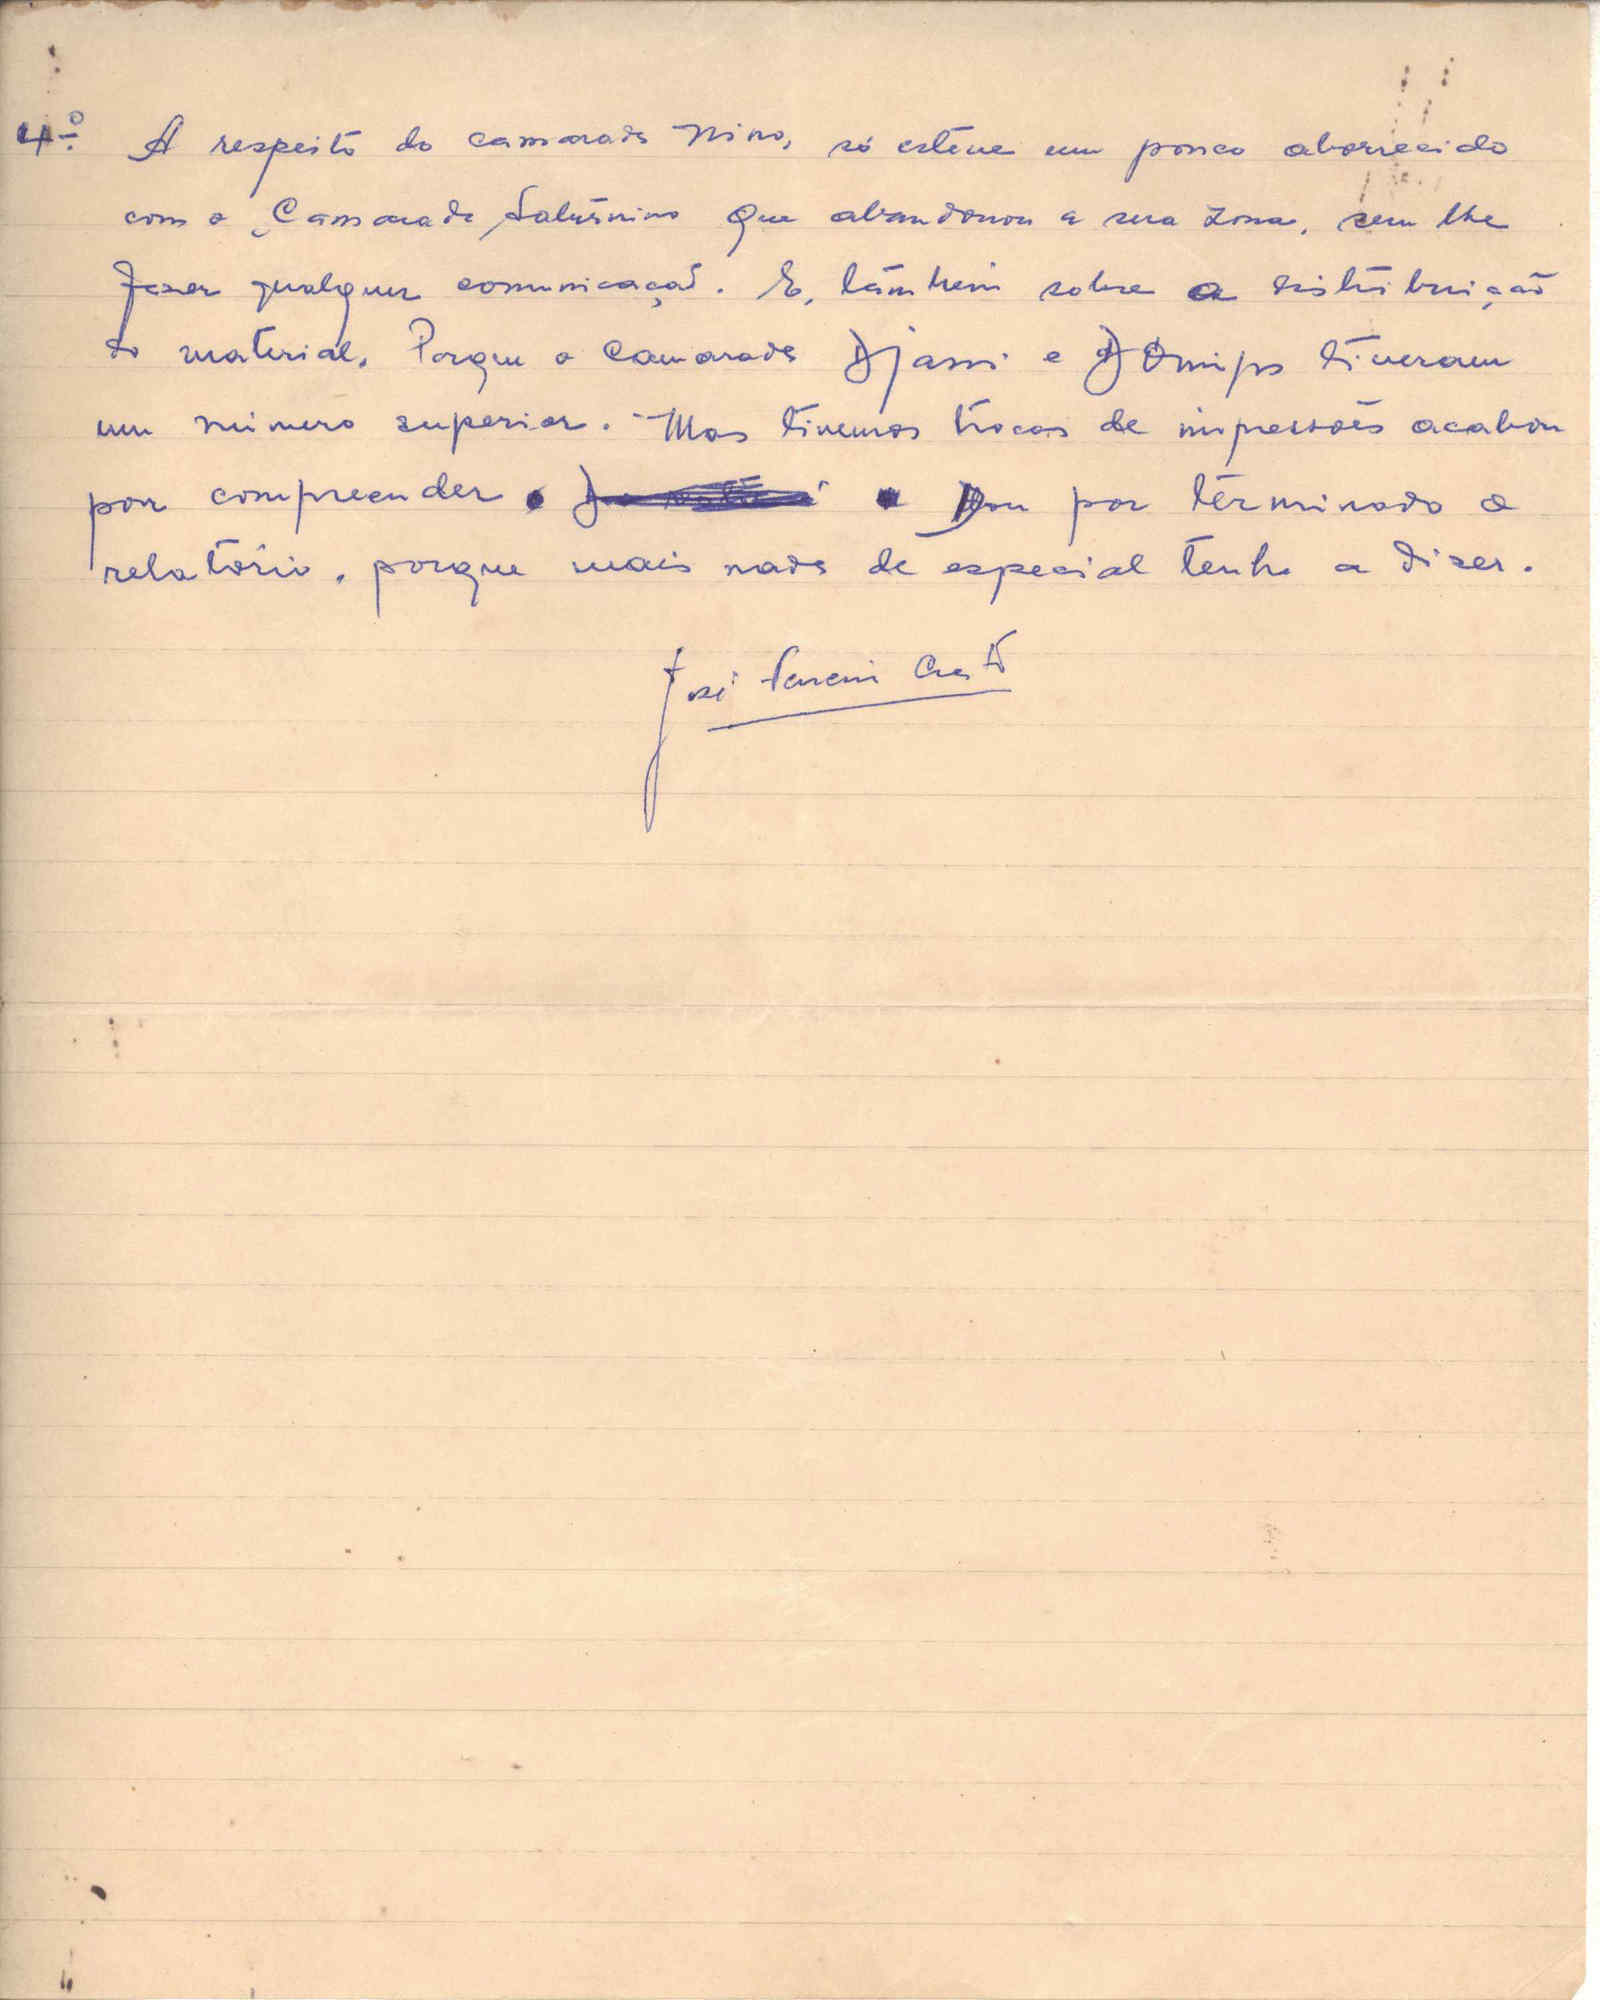 4º A respeito do camarada Nino, só esteve um pouco aborrecido
com o Camarada Saturnino que abandonou a sua zona, sem lhe
fazer qualquer comunicação. E, também sobre a distribuição
do material. Porque o Camarada Djassi e tiveram
um número superior. Mas tivemos trocas de impressões acabou
por compreender. Dou por terminado o
relatório, porque mais nada de especial tenho a dizer.
José